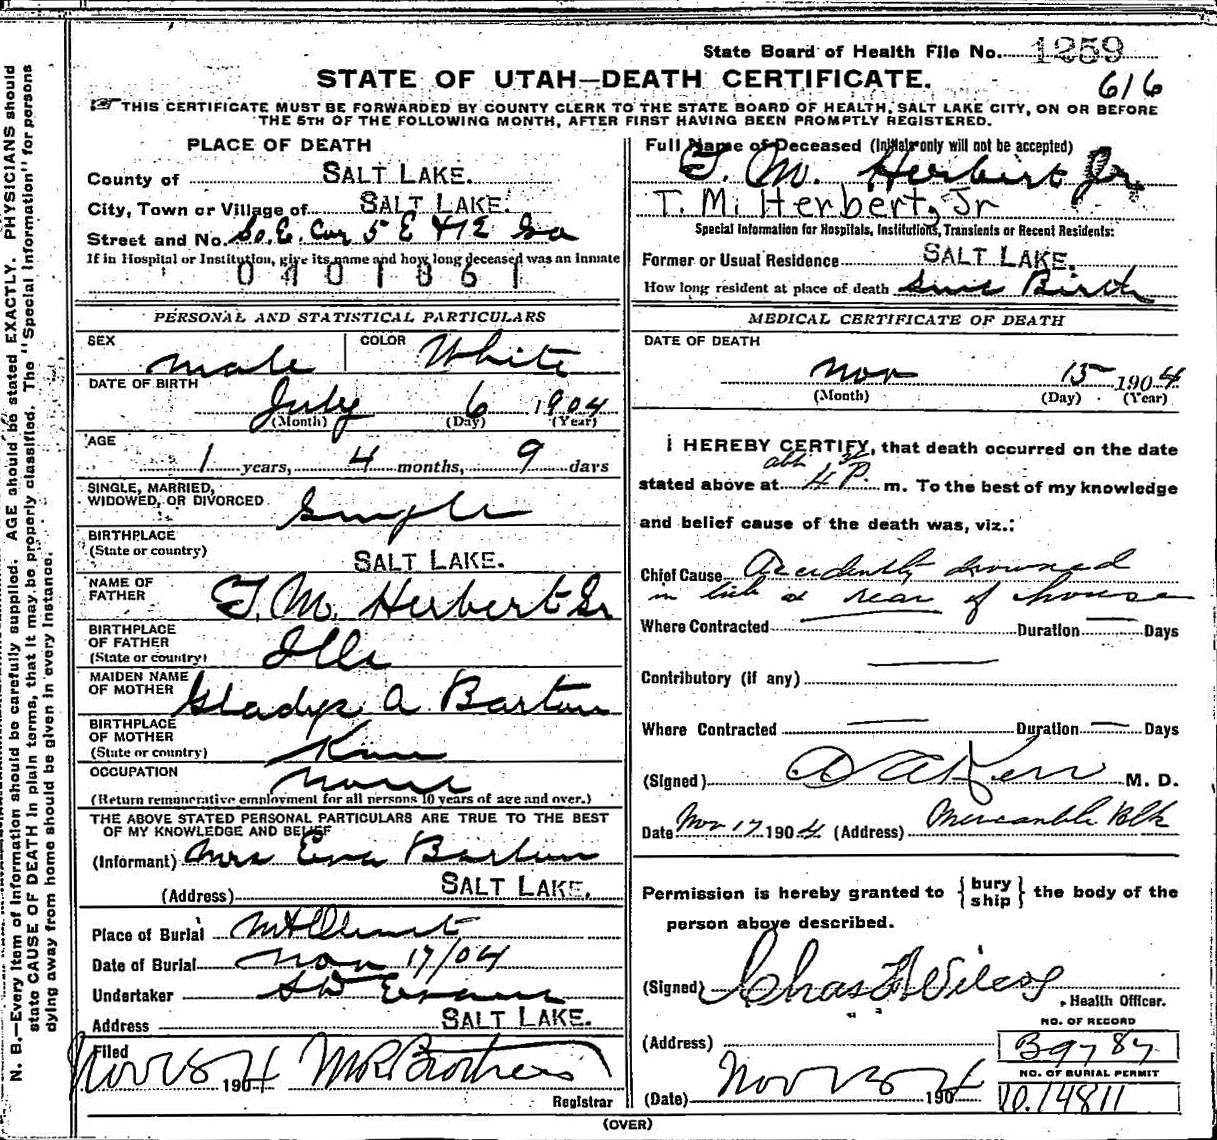 N. B.—Every item of information should be carefully supplied. AGE should be stated EXACTLY. PHYSICIANS should
state CAUSE OF DEATH in plain terms, that it may be properly classified. The "Special Information" for persons
dying away from home should be given in every instance.
State Board of Health File No. 1259
STATE OF UTAH—DEATH CERTIFICATE.
616
THIS CERTIFICATE MUST BE FORWARDED BY COUNTY CLERK TO THE STATE BOARD OF HEALTH, SALT LAKE CITY, ON OR BEFORE
THE 5TH OF THE FOLLOWING MONTH, AFTER FIRST HAVING BEEN PROMPTLY REGISTERED.
PLACE OF DEATH
County of SALT LAKE.
City, Town or Village of SALT LAKE.
Street and No. So. E. Cor 5 E & 12 So
If in Hospital or Institution, give its name and how long deceased was an inmate
0401861
Full Name of Deceased (Initials only will not be accepted)
T. M. Herbert Jr,
T. M. Herbert, Jr
Special Information for Hospitals, Institutions, Transients or Recent Residents:
Former or Usual Residence SALT LAKE.
How long resident at place of death Since Birth
PERSONAL AND STATISTICAL PARTICULARS
SEX male COLOR White
DATE OF BIRTH
July 6 1904
(Month) (Day) (Year)
AGE
1 years, 4 months, 9 days
SINGLE, MARRIED,
WIDOWED, OR DIVORCED Single
BIRTHPLACE
(State or country) SALT LAKE.
NAME OF
FATHER T. M. Herbert Sr
BIRTHPLACE
OF FATHER
(State or country) Ills
MAIDEN NAME
OF MOTHER Gladys A Barton
BIRTHPLACE
OF MOTHER
(State or country)
OCCUPATION None
(Return remunerative employment for all persons 10 years of age and over.)
THE ABOVE STATED PERSONAL PARTICULARS ARE TRUE TO THE BEST
OF MY KNOWLEDGE AND BELIEF
(Informant) Mrs Eva Barton
(Address) SALT LAKE.
Place of Burial Mt Olivet
Date of Burial Nov 17/04
Undertaker S D Evans
Address SALT LAKE.
Filed
Nov 18 1904 M R Brothers
Registrar
MEDICAL CERTIFICATE OF DEATH
DATE OF DEATH
Nov 15 1904
(Month) (Day) (Year)
I HEREBY CERTIFY, that death occurred on the date
stated above at 4 P. m. To the best of my knowledge
and belief cause of the death was, viz.:
Chief Cause Accidently drowned
in tub at rear of house
Where Contracted Duration Days
Contributory (if any)
Where Contracted Duration Days
(Signed) M. D.
Date Nov 17 1904 (Address) Mercantile Blk
Permission is hereby granted to { bury ship } the body of the
person above described.
(Signed) Chas F Wilcox, Health Officer.
(Address) " "
NO. OF RECORD
B9787
NO. OF BURIAL PERMIT
D.14811
(Date) Nov 1904
(OVER)